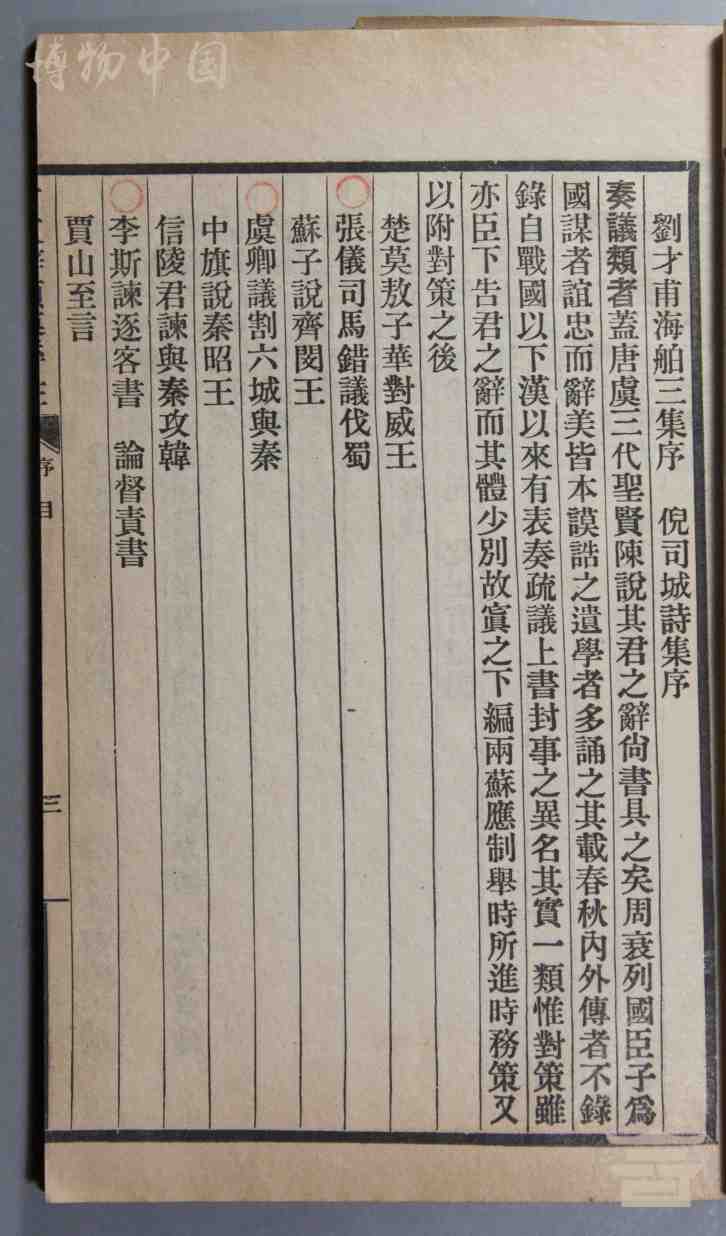 博物中国
劉才甫海舶三集序　倪司城詩集序
奏議類者蓋唐虞三代聖賢陳說其君之辭尙書具之矣周衰列國臣子爲
國謀者誼忠而辭美皆本謨誥之遺學者多誦之其載春秋內外傳者不錄
錄自戰國以下漢以來有表奏疏議上書封事之異名其實一類惟對策雖
亦臣下告君之辭而其體少別故寘之下編兩蘇應制舉時所進時務策又
以附對策之後
楚莫敖子華對威王
張儀司馬錯議伐蜀
蘇子說齊閔王
虞卿議割六城與秦
中旗說秦昭王
信陵君諫與秦攻韓
李斯諫逐客書　論督責書
賈山至言
序目
三